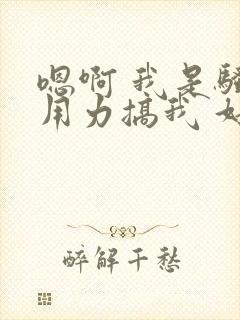 嗯啊 我是骚
用力搞我 好
醉解千愁